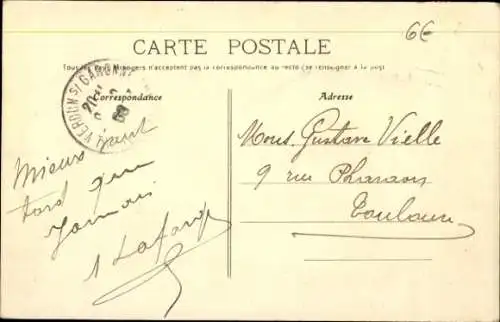 6€
CARTE POSTALE
Tous les pays étrangers n'acceptent pas la correspondance au recto (se renseigner à la poste
Correspondance
Adresse
VERDUN S/ GARONNE
Mieux vaut
tard que
jamais
Lafarge
Mons. Gustave Vielle
9 rue Pharaon
Toulouse